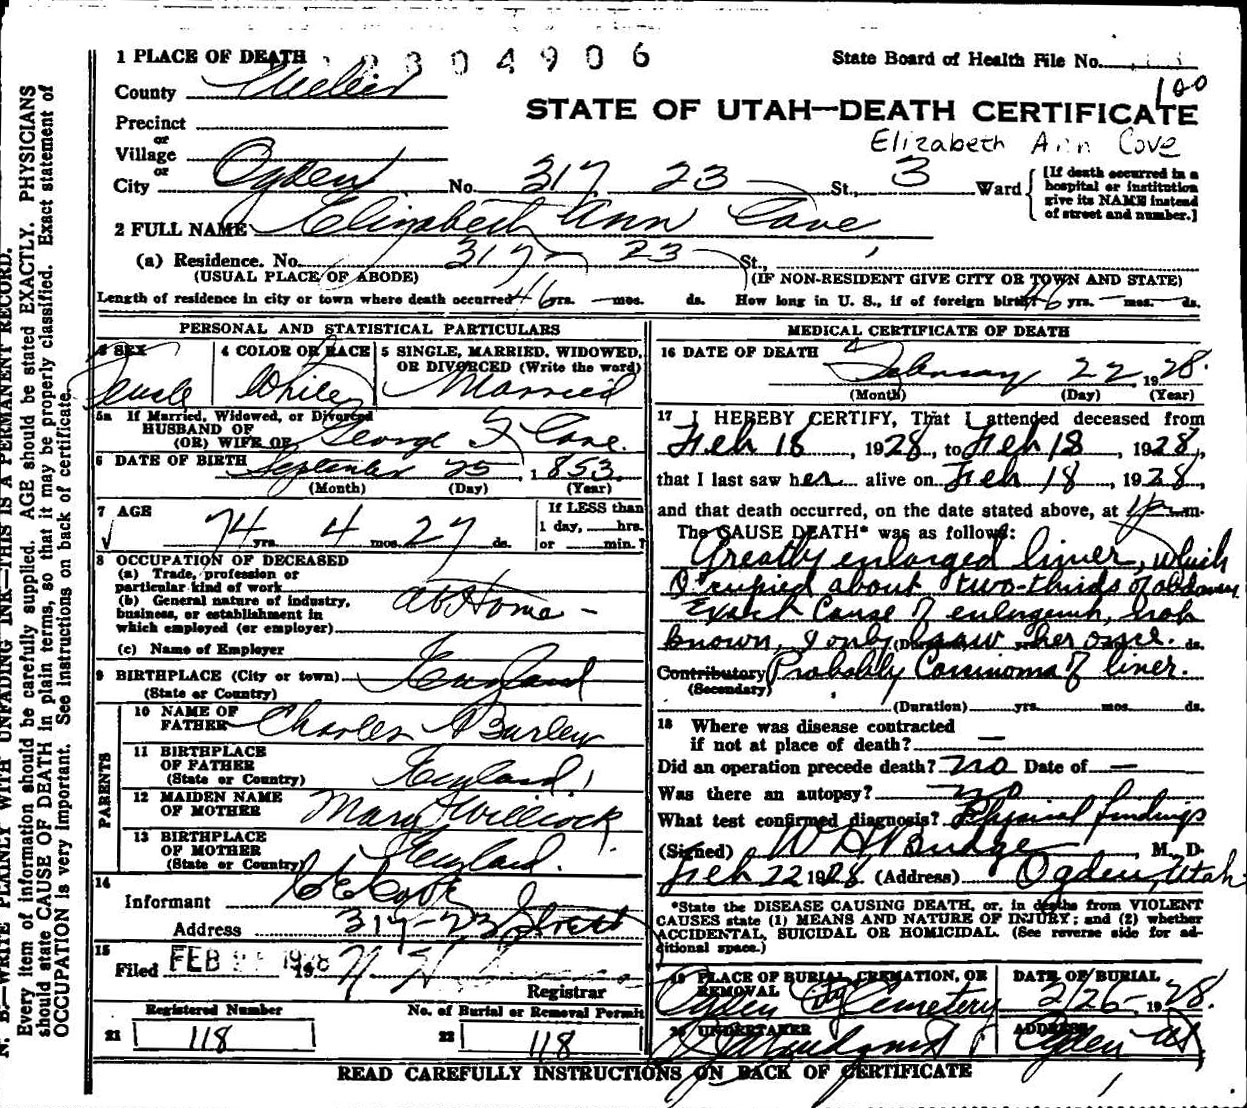 1 PLACE OF DEATH 2304906 State Board of Health File No.
County Weber 100
STATE OF UTAH—DEATH CERTIFICATE
Precinct
or
Village
Elizabeth Ann Cove
or
City Ogden No. 317 23 St., 3 Ward
[If death occurred in a
hospital or institution
give its NAME instead
of street and number.]
2 FULL NAME Elizabeth Ann Cove
(a) Residence. No. 317 – 23 St.,
(USUAL PLACE OF ABODE) (IF NON-RESIDENT GIVE CITY OR TOWN AND STATE)
Length of residence in city or town where death occurred 46 yrs. — mos. ds. How long in U. S., if of foreign birth? 46 yrs. — mos. — ds.
PERSONAL AND STATISTICAL PARTICULARS
3 SEX 4 COLOR OR RACE 5 SINGLE, MARRIED, WIDOWED,
OR DIVORCED (Write the word)
Female White Married
5a If Married, Widowed, or Divorced
HUSBAND OF
(OR) WIFE OF George F Cove.
6 DATE OF BIRTH September 25, 1853
(Month) (Day) (Year)
7 AGE If LESS than
74 yrs. 4 mos. 27 ds. 1 day, hrs.
or min.?
8 OCCUPATION OF DECEASED
(a) Trade, profession or
particular kind of work
(b) General nature of industry,
business, or establishment in
which employed (or employer)
At Home –
(c) Name of Employer
9 BIRTHPLACE (City or town) England
(State or Country)
PARENTS
10 NAME OF
FATHER Charles Burley
11 BIRTHPLACE
OF FATHER
(State or Country) England
12 MAIDEN NAME
OF MOTHER Mary Willcock
13 BIRTHPLACE
OF MOTHER
(State or Country) England.
14
Informant
Address 317–23 Street
15
Filed FEB 1928 19
Registrar
Registered Number No. of Burial or Removal Permit
21 118 22 118
MEDICAL CERTIFICATE OF DEATH
16 DATE OF DEATH
February 22, 1928.
(Month) (Day) (Year)
17 I HEREBY CERTIFY, That I attended deceased from
Feb 18, 1928, to Feb 18, 1928,
that I last saw her alive on Feb 18, 1928,
and that death occurred, on the date stated above, at m.
The CAUSE DEATH* was as follows:
Greatly enlarged liver, which
Occupied about two-thirds of abdomen
Exact Cause of enlargemt, not
known, I only saw her once.
(Duration) yrs. mos. ds.
Contributory Probably Carcinoma of liver.
(Secondary)
(Duration) yrs. mos. ds.
18 Where was disease contracted
if not at place of death? —
Did an operation precede death? no Date of —
Was there an autopsy? no
What test confirmed diagnosis? Physical findings
(Signed) W H Budge, M. D.
Feb 22 1928 (Address) Ogden, Utah
*State the DISEASE CAUSING DEATH, or, in deaths from VIOLENT
CAUSES state (1) MEANS AND NATURE OF INJURY; and (2) whether
ACCIDENTAL, SUICIDAL OR HOMICIDAL. (See reverse side for ad-
ditional space.)
19 PLACE OF BURIAL, CREMATION, OR
REMOVAL DATE OF BURIAL
Ogden City Cemetery 2/26–, 1928.
20 UNDERTAKER ADDRESS
Ogden Ut
READ CAREFULLY INSTRUCTIONS ON BACK OF CERTIFICATE
N. B.—WRITE PLAINLY WITH UNFADING INK—THIS IS A PERMANENT RECORD.
Every item of information should be carefully supplied. AGE should be stated EXACTLY. PHYSICIANS
should state CAUSE OF DEATH in plain terms, so that it may be properly classified. Exact statement of
OCCUPATION is very important. See instructions on back of certificate.